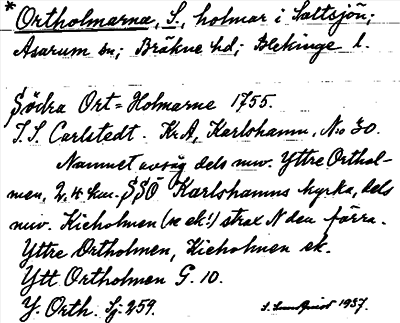 *Ortholmarna, S., holmar i Saltsjön;
Asarum sn; Bräkne hd; Blekinge l.
Södra Ort=Holmarne 1755.
J. S. Carlstedt. Kr. A, Karlshamn, No 30.
Namnet avsåg dels nuv. Yttre Orthol-
men, 2,4 km. SSÖ Karlshamns kyrka, dels
nuv. Kieholmen (se ek!) strax N den förra.
Yttre Ortholmen, Kieholmen ek.
Ytt. Ortholmen G. 10.
Y. Orth. Sj. 259.
S. Lundquist 1937.